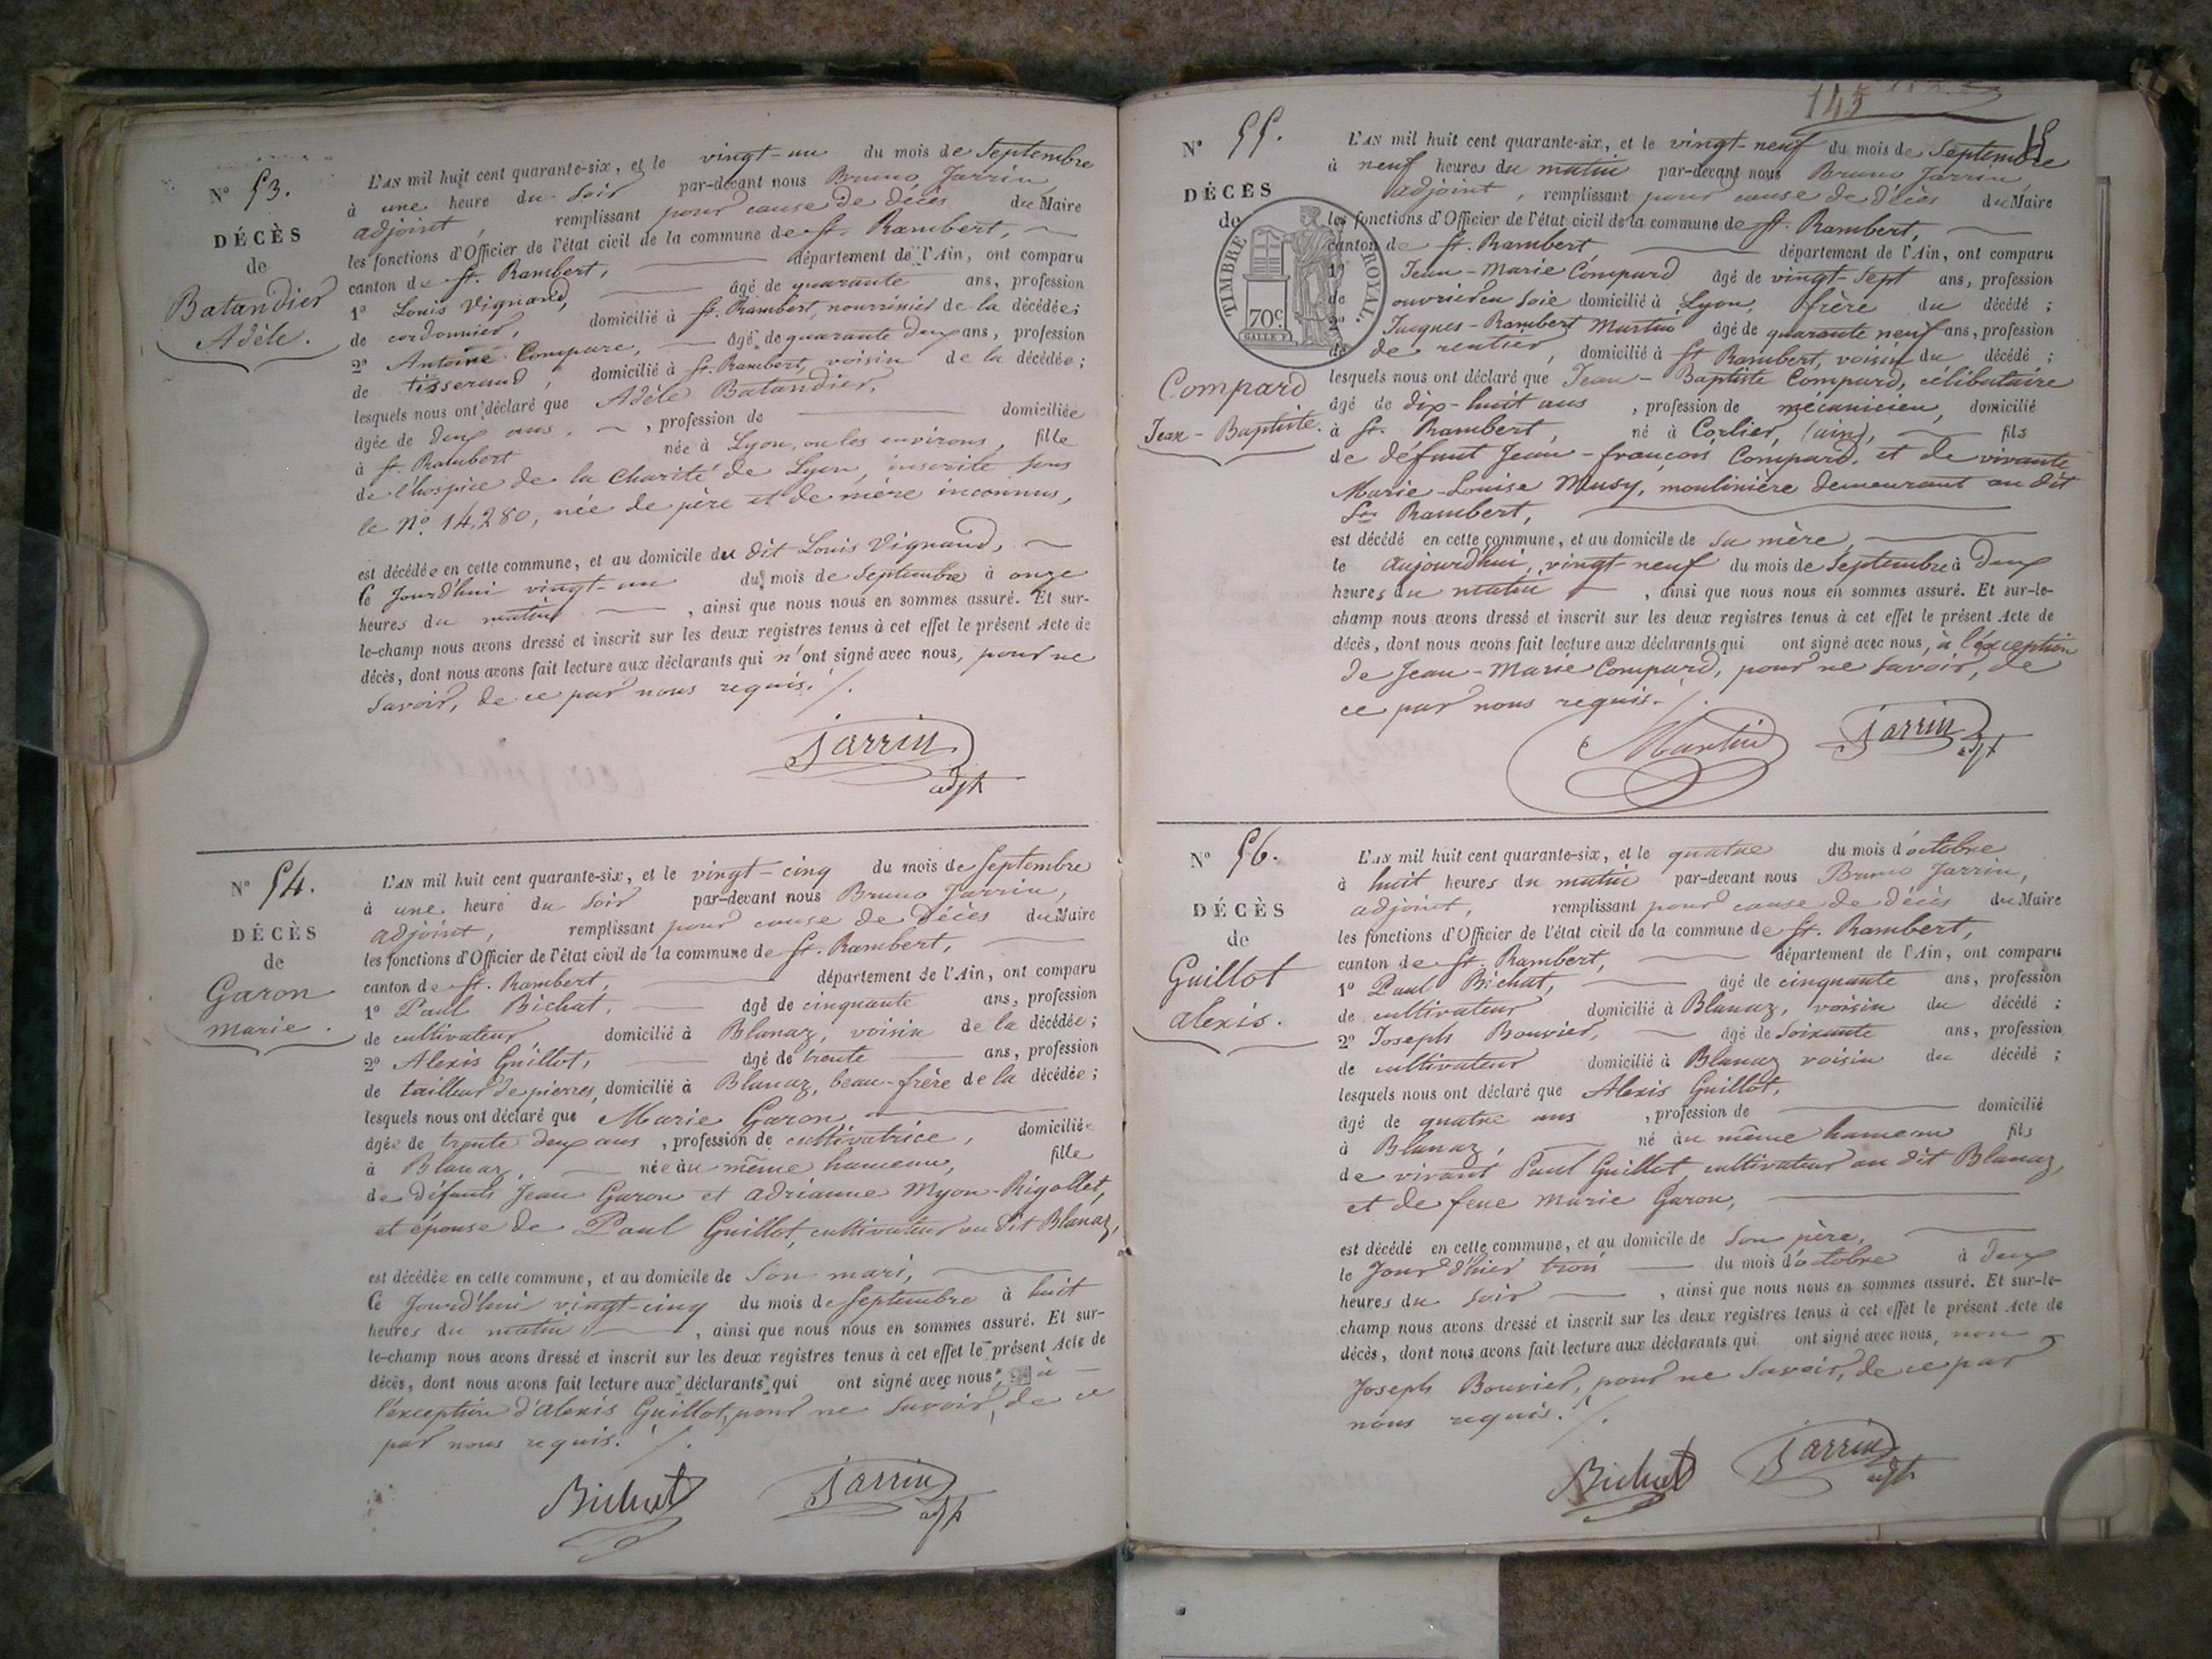 N° 53.
DÉCÈS
de
Batandier
Adèle.
L'AN mil huit cent quarante-six, et le vingt-un du mois de Septembre
à une heure du Soir par-devant nous Bruno Jarrin,
adjoint, remplissant pour cause de décès du Maire
les fonctions d'Officier de l'état civil de la commune de St. Rambert,
canton de St. Rambert, département de l'Ain, ont comparu
1° Louis Vignand, âgé de quarante ans, profession
de cordonnier, domicilié à St. Rambert, nourricier de la décédée;
2° Antoine Compare, âgé de quarante deux ans, profession
de tisserand, domicilié à St. Rambert, voisin de la décédée;
lesquels nous ont déclaré que Adèle Batandier,
âgée de deux ans, , profession de domiciliée
à St. Rambert née à Lyon, ou les environs, fille
de l'hospice de la Charité de Lyon, inscrite sous
le N° 14,280, née de père et de mère inconnus,
est décédée en cette commune, et au domicile du dit Louis Vignand,
le Jourd'hui vingt-un du mois de Septembre à onze
heures du matin , ainsi que nous nous en sommes assuré. Et sur-
le-champ nous avons dressé et inscrit sur les deux registres tenus à cet effet le présent Acte de
décès, dont nous avons fait lecture aux déclarants qui n'ont signé avec nous, pour ne
Savoir, de ce par nous requis. /.
Jarrin
adjt
N° 54.
DÉCÈS
de
Garon
marie.
L'AN mil huit cent quarante-six, et le vingt-cinq du mois de Septembre
à une heure du Soir par-devant nous Bruno Jarrin,
adjoint, remplissant pour cause de décès du Maire
les fonctions d'Officier de l'état civil de la commune de St. Rambert,
canton de St. Rambert, département de l'Ain, ont comparu
1° Paul Bichat, âgé de cinquante ans, profession
de cultivateur, domicilié à Blanaz, voisin de la décédée;
2° Alexis Guillot, âgé de trente ans, profession
de tailleur de pierres, domicilié à Blanaz, beau-frère de la décédée;
lesquels nous ont déclaré que Marie Garon,
âgée de trente deux ans , profession de cultivatrice, domiciliée
à Blanaz, née au même hameau, fille
de défunts Jean Garon et adrianne Myon-Rigollet,
et épouse de Paul Guillot, cultivateur au dit Blanaz,
est décédée en cette commune, et au domicile de Son mari,
le Jourd'hui vingt-cinq du mois de Septembre à huit
heures du matin , ainsi que nous nous en sommes assuré. Et sur-
le-champ nous avons dressé et inscrit sur les deux registres tenus à cet effet le présent Acte de
décès, dont nous avons fait lecture aux déclarants qui ont signé avec nous, à
l'exception d'alexis Guillot, pour ne Savoir, de ce
par nous requis. /.
Bichat Jarrin
adjt
145
15
N° 55.
DÉCÈS
de
TIMBRE ROYAL.
70c
Compard
Jean-Baptiste.
L'AN mil huit cent quarante-six, et le vingt-neuf du mois de Septembre
à neuf heures du matin par-devant nous Bruno Jarrin,
adjoint, remplissant pour cause de décès du Maire
les fonctions d'Officier de l'état civil de la commune de St. Rambert,
canton de St. Rambert, département de l'Ain, ont comparu
1° Jean-Marie Compard âgé de vingt-sept ans, profession
de ouvrier en soie domicilié à Lyon, frère du décédé;
2° Jacques-Rambert Martin âgé de quarante neuf ans, profession
de de rentier, domicilié à St Rambert, voisin du décédé;
lesquels nous ont déclaré que Jean-Baptiste Compard, célibataire
âgé de dix-huit ans , profession de mécanicien, domicilié
à St. Rambert, né à Corlier, (ain), fils
de défunt Jean-françois Compard, et de vivante
Marie-Louise Musy, moulinière demeurant au dit
St Rambert,
est décédé en cette commune, et au domicile de sa mère,
le aujourd'hui, vingt-neuf du mois de Septembre à deux
heures du matin , ainsi que nous nous en sommes assuré. Et sur-le-
champ nous avons dressé et inscrit sur les deux registres tenus à cet effet le présent Acte de
décès, dont nous avons fait lecture aux déclarants qui ont signé avec nous, à l'exception
de Jean-Marie Compard, pour ne Savoir, de
ce par nous requis. /.
Martin Jarrin
adjt
N° 56.
DÉCÈS
de
Guillot
alexis.
L'AN mil huit cent quarante-six, et le quatre du mois d'octobre
à huit heures du matin par-devant nous Bruno Jarrin,
adjoint, remplissant pour cause de décès du Maire
les fonctions d'Officier de l'état civil de la commune de St. Rambert,
canton de St. Rambert, département de l'Ain, ont comparu
1° Paul Bichat, âgé de cinquante ans, profession
de cultivateur domicilié à Blanaz, voisin du décédé;
2° Joseph Bouvier, âgé de Soixante ans, profession
de cultivateur domicilié à Blanaz voisin du décédé;
lesquels nous ont déclaré que Alexis Guillot,
âgé de quatre ans , profession de domicilié
à Blanaz, né au même hameau fils
de vivant Paul Guillot, cultivateur au dit Blanaz,
et de feue Marie Garon,
est décédé en cette commune, et au domicile de Son père,
le Jour d'hier trois du mois d'octobre à deux
heures du Soir , ainsi que nous nous en sommes assuré. Et sur-le-
champ nous avons dressé et inscrit sur les deux registres tenus à cet effet le présent Acte de
décès, dont nous avons fait lecture aux déclarants qui ont signé avec nous, non
Joseph Bouvier, pour ne Savoir, de ce par
nous requis. /.
Bichat Jarrin
adjt